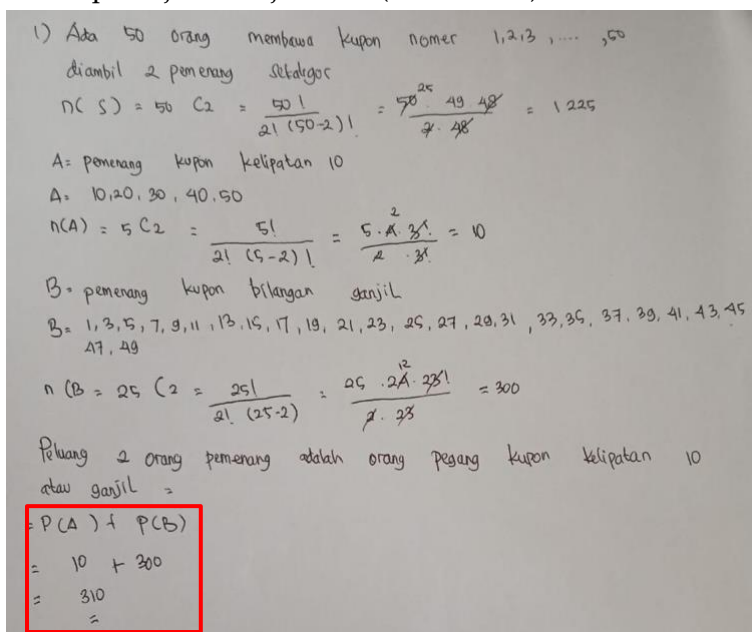 1) Ada 50 orang membawa kupon nomer 1,2,3 , .... ,50
diambil 2 pemenang sekaligos
n( S ) = 50 C2 = 50! / 2! (50-2)! = 50 25 . 49 . 48 / 2 . 48 = 1225
A = pemenang kupon kelipatan 10
A = 10,20, 30, 40, 50
n(A) = 5 C2 = 5! / 2! (5-2)! = 5 . 4 2 . 3! / 2 . 3! = 10
B = pemenang kupon bilangan ganjil
B = 1, 3, 5, 7, 9, 11, 13, 15, 17, 19, 21, 23, 25, 27, 29, 31, 33, 35, 37, 39, 41, 43, 45
47, 49
n (B = 25 C2 = 25! / 2! (25-2) = 25 . 24 12 . 23! / 2 . 23 = 300
Peluang 2 orang pemenang adalah orang pegang kupon kelipatan 10
atau ganjil =
= P(A) + P(B)
= 10 + 300
= 310
=